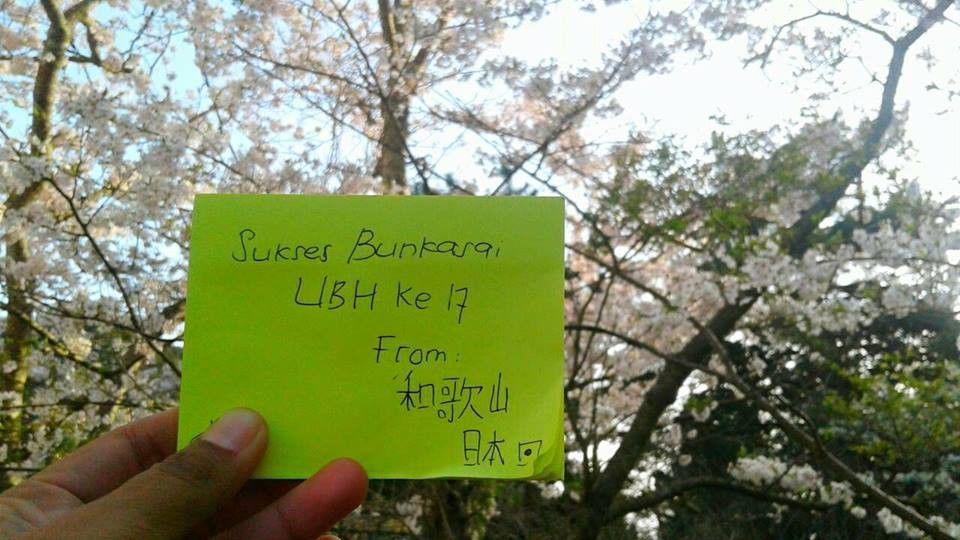 Sukses Bunkasai
UBH Ke 17
From:
和歌山
日本